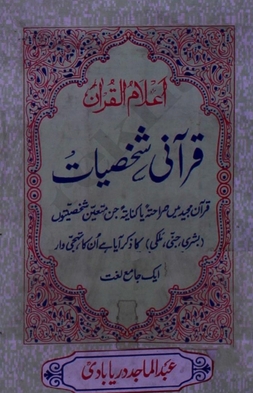 اعلام القُرآن
قرآنی شخصیات
قرآن مجید میں صراحتہً یا کنایتہً جن متعین شخصیتوں
(بشری، جنّی، ملکی) کا ذکر آیا ہے اُن کا تہجی وار
ایک جامع لغت
عبدالماجد دریابادیؒ